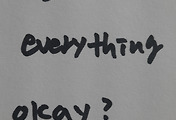 everything
okay?